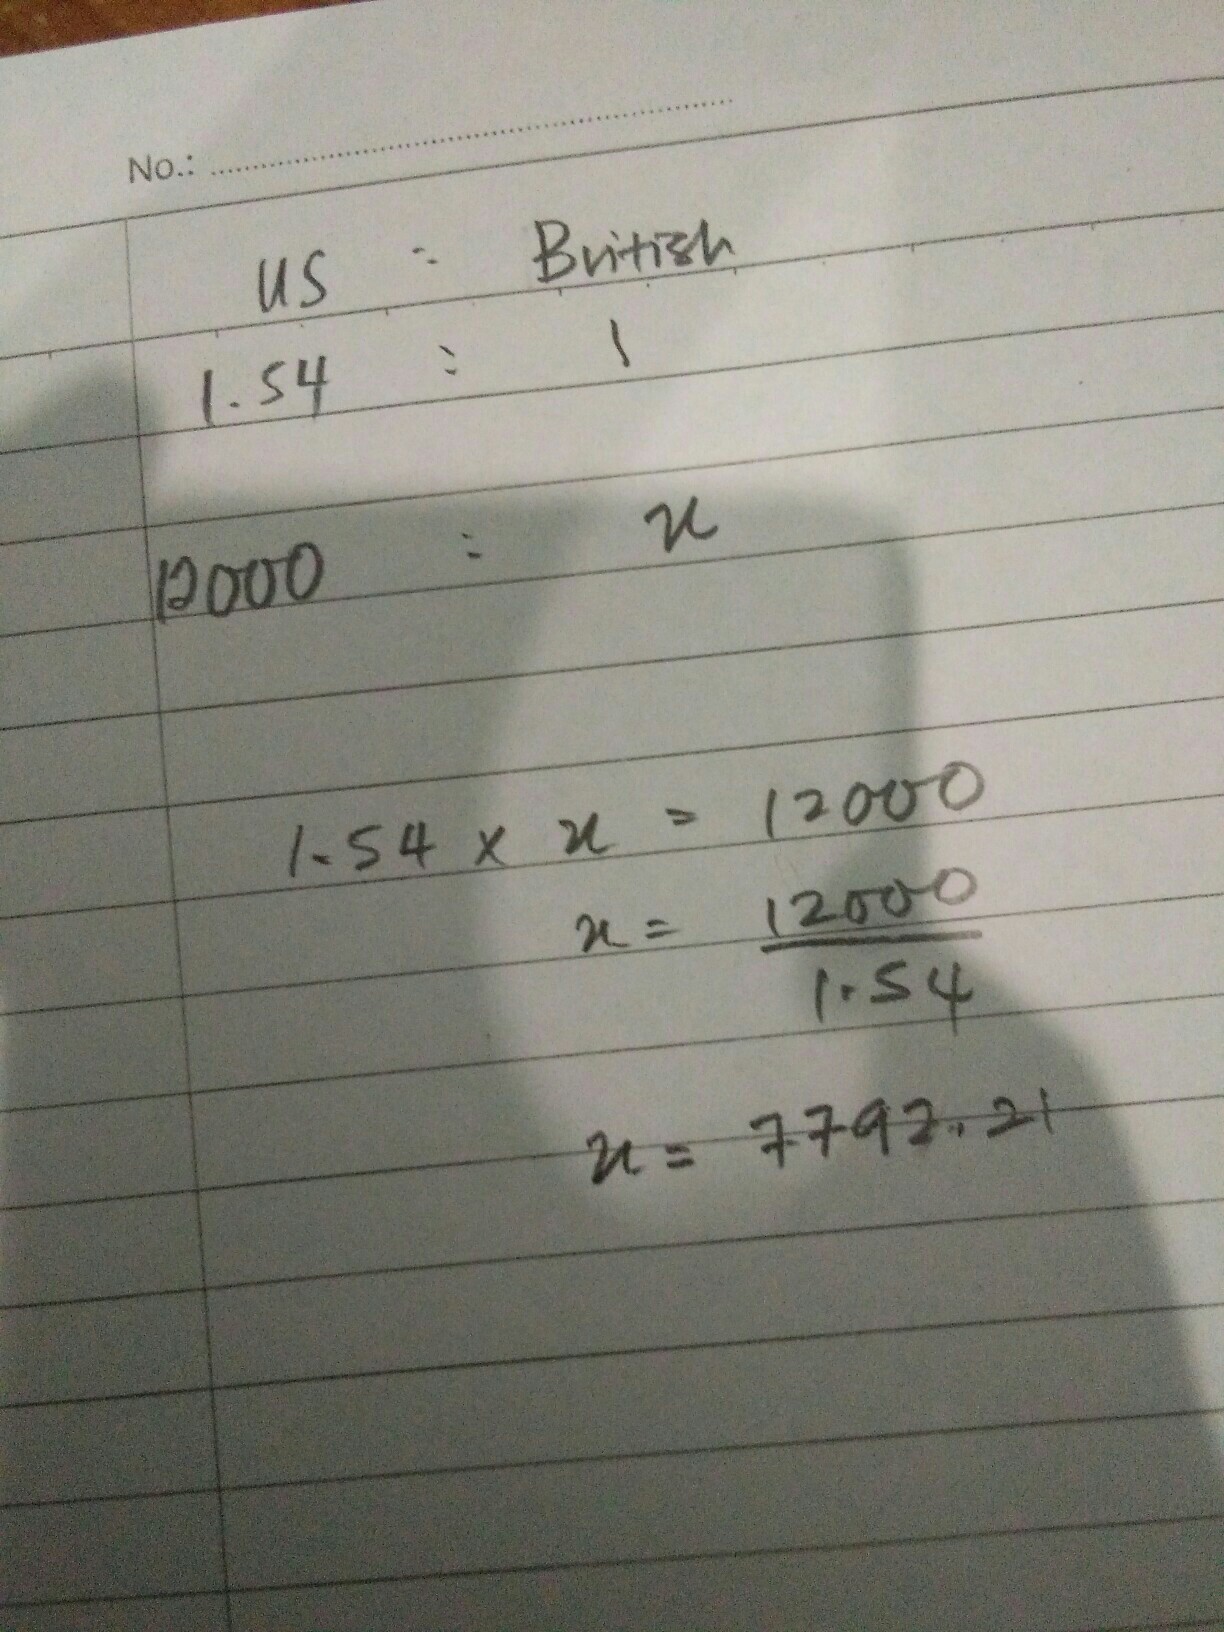 No.: ....................
US : British
1.54 : 1
12000 : x
1.54 × x = 12000
x = 12000
1.54
x = 7792.21